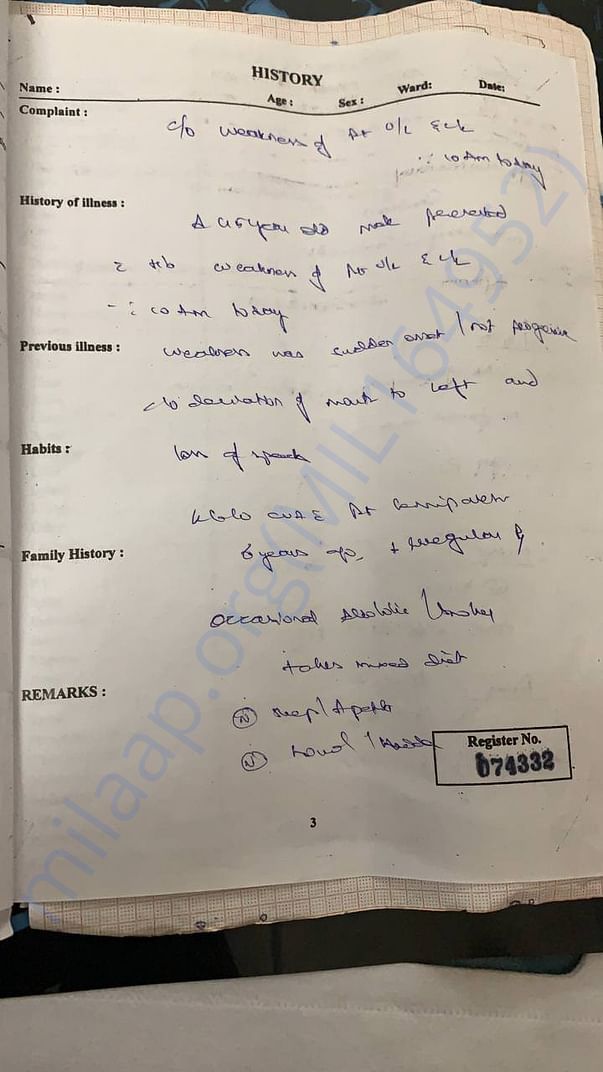 HISTORY
Name :
Age :
Sex :
Ward:
Date:
Complaint :
c/o weakness of Rt U/L & L/L
10 Am today
History of illness :
A 45 year old male presented
weakness of Rt U/L & L/L
10 Am today
Previous illness :
weakness was sudden onset / not progressive
c/o deviation of mouth to left and
Habits :
loss of speech
K/c/o CVA Rt hemiparesis
Family History :
6 years ago, irregular
occasional alcoholic / smoker
takes mixed diet
REMARKS :
(N) sleep / Appetite
(N) bowel / bladder
Register No.
074332
3
milaap.org(MIL1649952)